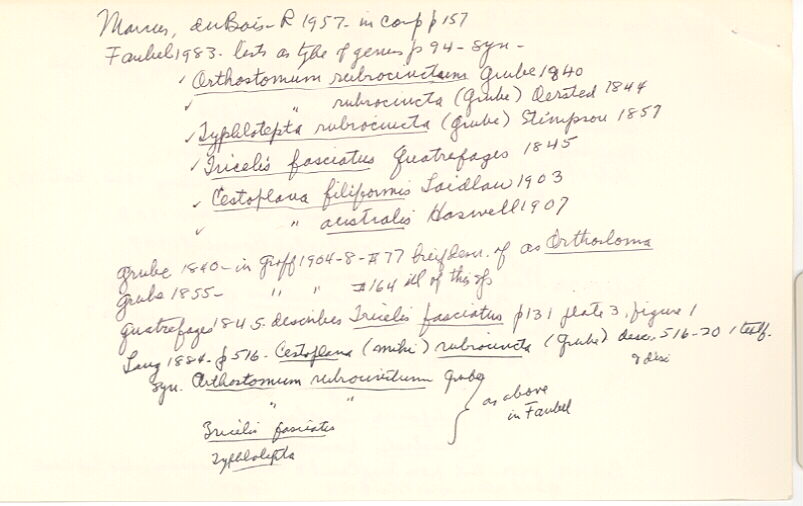 Marcus, du Bois-R 1957- in comp p 157
Faubel 1983- lists as type of genus p 94- syn-
✓ Orthostomum rubrocinctum Grube 1840
✓ " rubrocincta (Grube) Oersted 1844
✓ Typhlolepta rubrocincta (Grube) Stimpson 1857
✓ Tricelis fasciatus Quatrefages 1845
✓ Cestoplana filiformis Laidlaw 1903
✓ " australis Haswell 1907
Grube 1840- in Graff 1904-8- #77 breif desc. of as Orthostoma
Grube 1855- " " #164 ill of this sp
Quatrefages 1845- describes Tricelis fasciatus p 131 plate 3, figure 1
Lang 1884- p 516- Cestoplana (mihi) rubrocincta (Grube) desc. 516-20 1 textf.
& desc
syn. Orthostomum rubrocinctum Grube
" "
Tricelis fasciatus
Typhlolepta
} as above
in Faubel